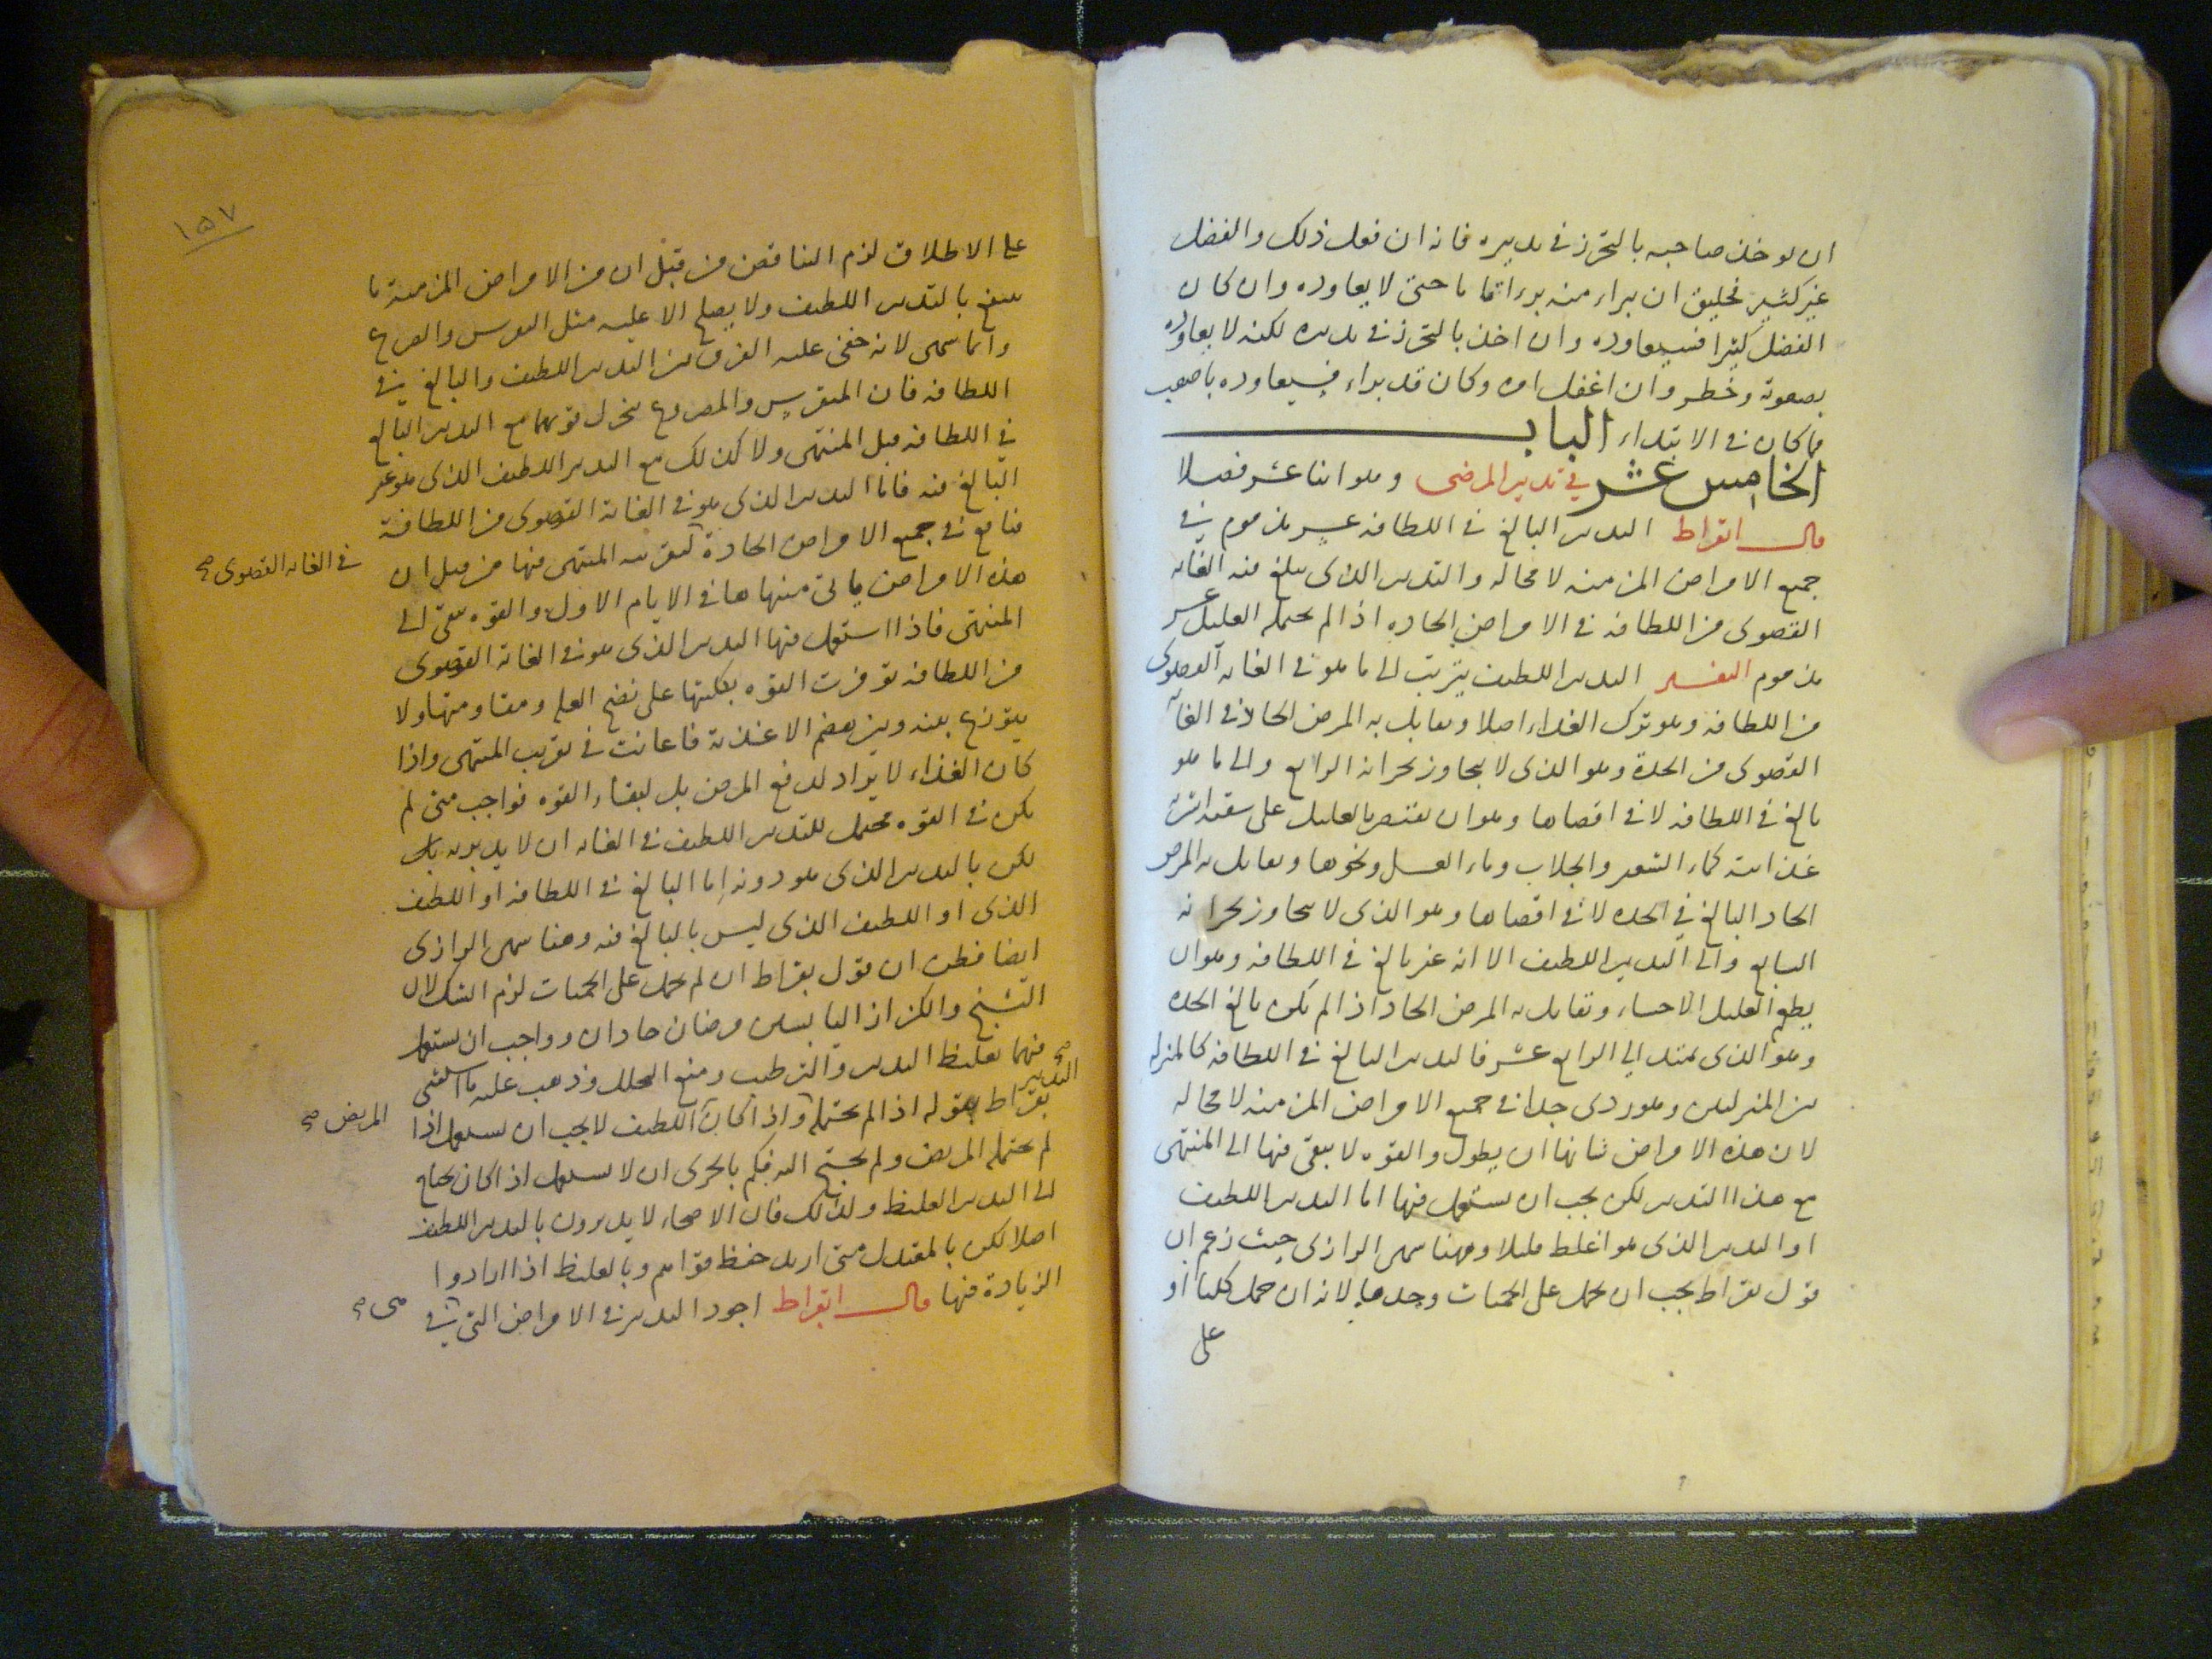 ان يوخذ صاحبه بالتحرز في تدبيره فانه ان فعل ذلك والفضل
غير كثير فخليق ان يبراء منه برءا تاما حتى لا يعاوده وان كان
الفضل كثيرا فسيعاوده وان اخذ بالتحرز في تدبيره لكنه لا يعاوده
بصعوبة وخطر وان اغفل امره وكان قد براء فسيعاوده باصعب
مما كان في الابتداء الباب
الخامس عشر في تدبير المرضى وهو اثنا عشر فصلا
قال ابقراط التدبير البالغ في اللطافه عسر مذموم في
جميع الامراض المزمنه لا محاله والتدبير الذى يبلغ فيه الغايه
القصوى من اللطافه في الامراض الحاده اذا لم يحتمله العليل عسر
مذموم التفسير التدبير اللطيف يترتب الى ما هو في الغايه القصوى
من اللطافه وهو ترك الغداء اصلا ويقابل به المرض الحاد في الغاية
القصوى من الحدة وهو الذى لا يجاوز بحرانه الرابع والى ما هو
بالغ في اللطافه لا في اقصاها وهو ان يقتصر بالعليل على سقيه اشربه
غذائية كماء الشعير والجلاب وماء العسل ونحوها ويقابل به المرض
الحاد البالغ في الحده لا في اقصاها وهو الذى لا يجاوز بحرانه
السابع والى التدبير اللطيف الا انه غير بالغ في اللطافه وهو ان
يطعم العليل الاحساء ويقابل به المرض الحاد اذا لم يكن بالغ الحده
وهو الذى يمتد الى الرابع عشر فالتدبير البالغ في اللطافه كالمنزله
بين المنزلتين وهو ردى جدا في جميع الامراض المزمنه لا محاله
لان هذه الامراض شانها ان يطول والقوه لا يبقى فيها الى المنتهى
مع هذا التدبير لكن يجب ان يستعمل فيها اما التدبير اللطيف
او التدبير الذى هو اغلظ قليلا وههنا سهى الرازى حيث زعم ان
قول بقراط يجب ان يحمل على الحميات وحدها لانه ان حمل كليا او
على
١٥٧
على الاطلاق لزم التناقض من قبل ان من الامراض المزمنة ما
ينتفع بالتدبير اللطيف ولا يصلح الا عليه مثل النقرس والصرع
وانما سهى لانه خفى عليه الفرق بين التدبير اللطيف والبالغ في
اللطافه فان المنقرس والمصروع تخزل قوتهما مع التدبير البالغ
في اللطافه قبل المنتهى ولا كذلك مع التدبير اللطيف الذى هو غير
البالغ فيه فاما التدبير الذى هو في الغاية القصوى من اللطافة
في الغايه القصوى صح
فنافع في جميع الامراض الحادة لقرب المنتهى فيها من قبل ان
هذه الامراض ياتى منتهاها في الايام الاول والقوه تبقى الى
المنتهى فاذا استعمل فيها التدبير الذى هو في الغاية القصوى
من اللطافه توفرت القوه بكليتها على نضج العله ومقاومتها ولا
يتوزع بينه وبين هضم الاغذية فاعانت في تقريب المنتهى واذا
كان الغذاء لا يراد لدفع المرض بل لبقاء القوه فواجب متى لم
يكن في القوه محتمل للتدبير اللطيف في الغايه ان لا يدبر به
لكن بالتدبير الذى هو دونه اما البالغ في اللطافه او اللطيف
الذى او اللطيف الذى ليس بالبالغ فيه وهنا سهى الرازى
ايضا فظن ان قول بقراط ان لم يحمل على الحميات لزم اشكالان
التشنج والكزاز اليابسين مرضان حادان وواجب ان يستعمل
فيهما تغليظ التدبير والترطيب ومنع التحلل وذهب عليه ما استثنى
بقراط بقوله اذا لم يحتمله واذا كان التدبير صح اللطيف لا يجب ان يستعمل اذا
المريض صح
لم يحتمله المريض ولم يحتج اليه فبالحرى ان لا يستعمل اذا كان يحتاج
الى التدبير الغليظ ولذلك فان الاصحاء لا يدبرون بالتدبير اللطيف
اصلا لكن بالمعتدل متى اريد حفظ قواهم وبالغليظ اذا ارادوا
الزيادة فيها قال ابقراط اجود التدبير في الامراض التي في